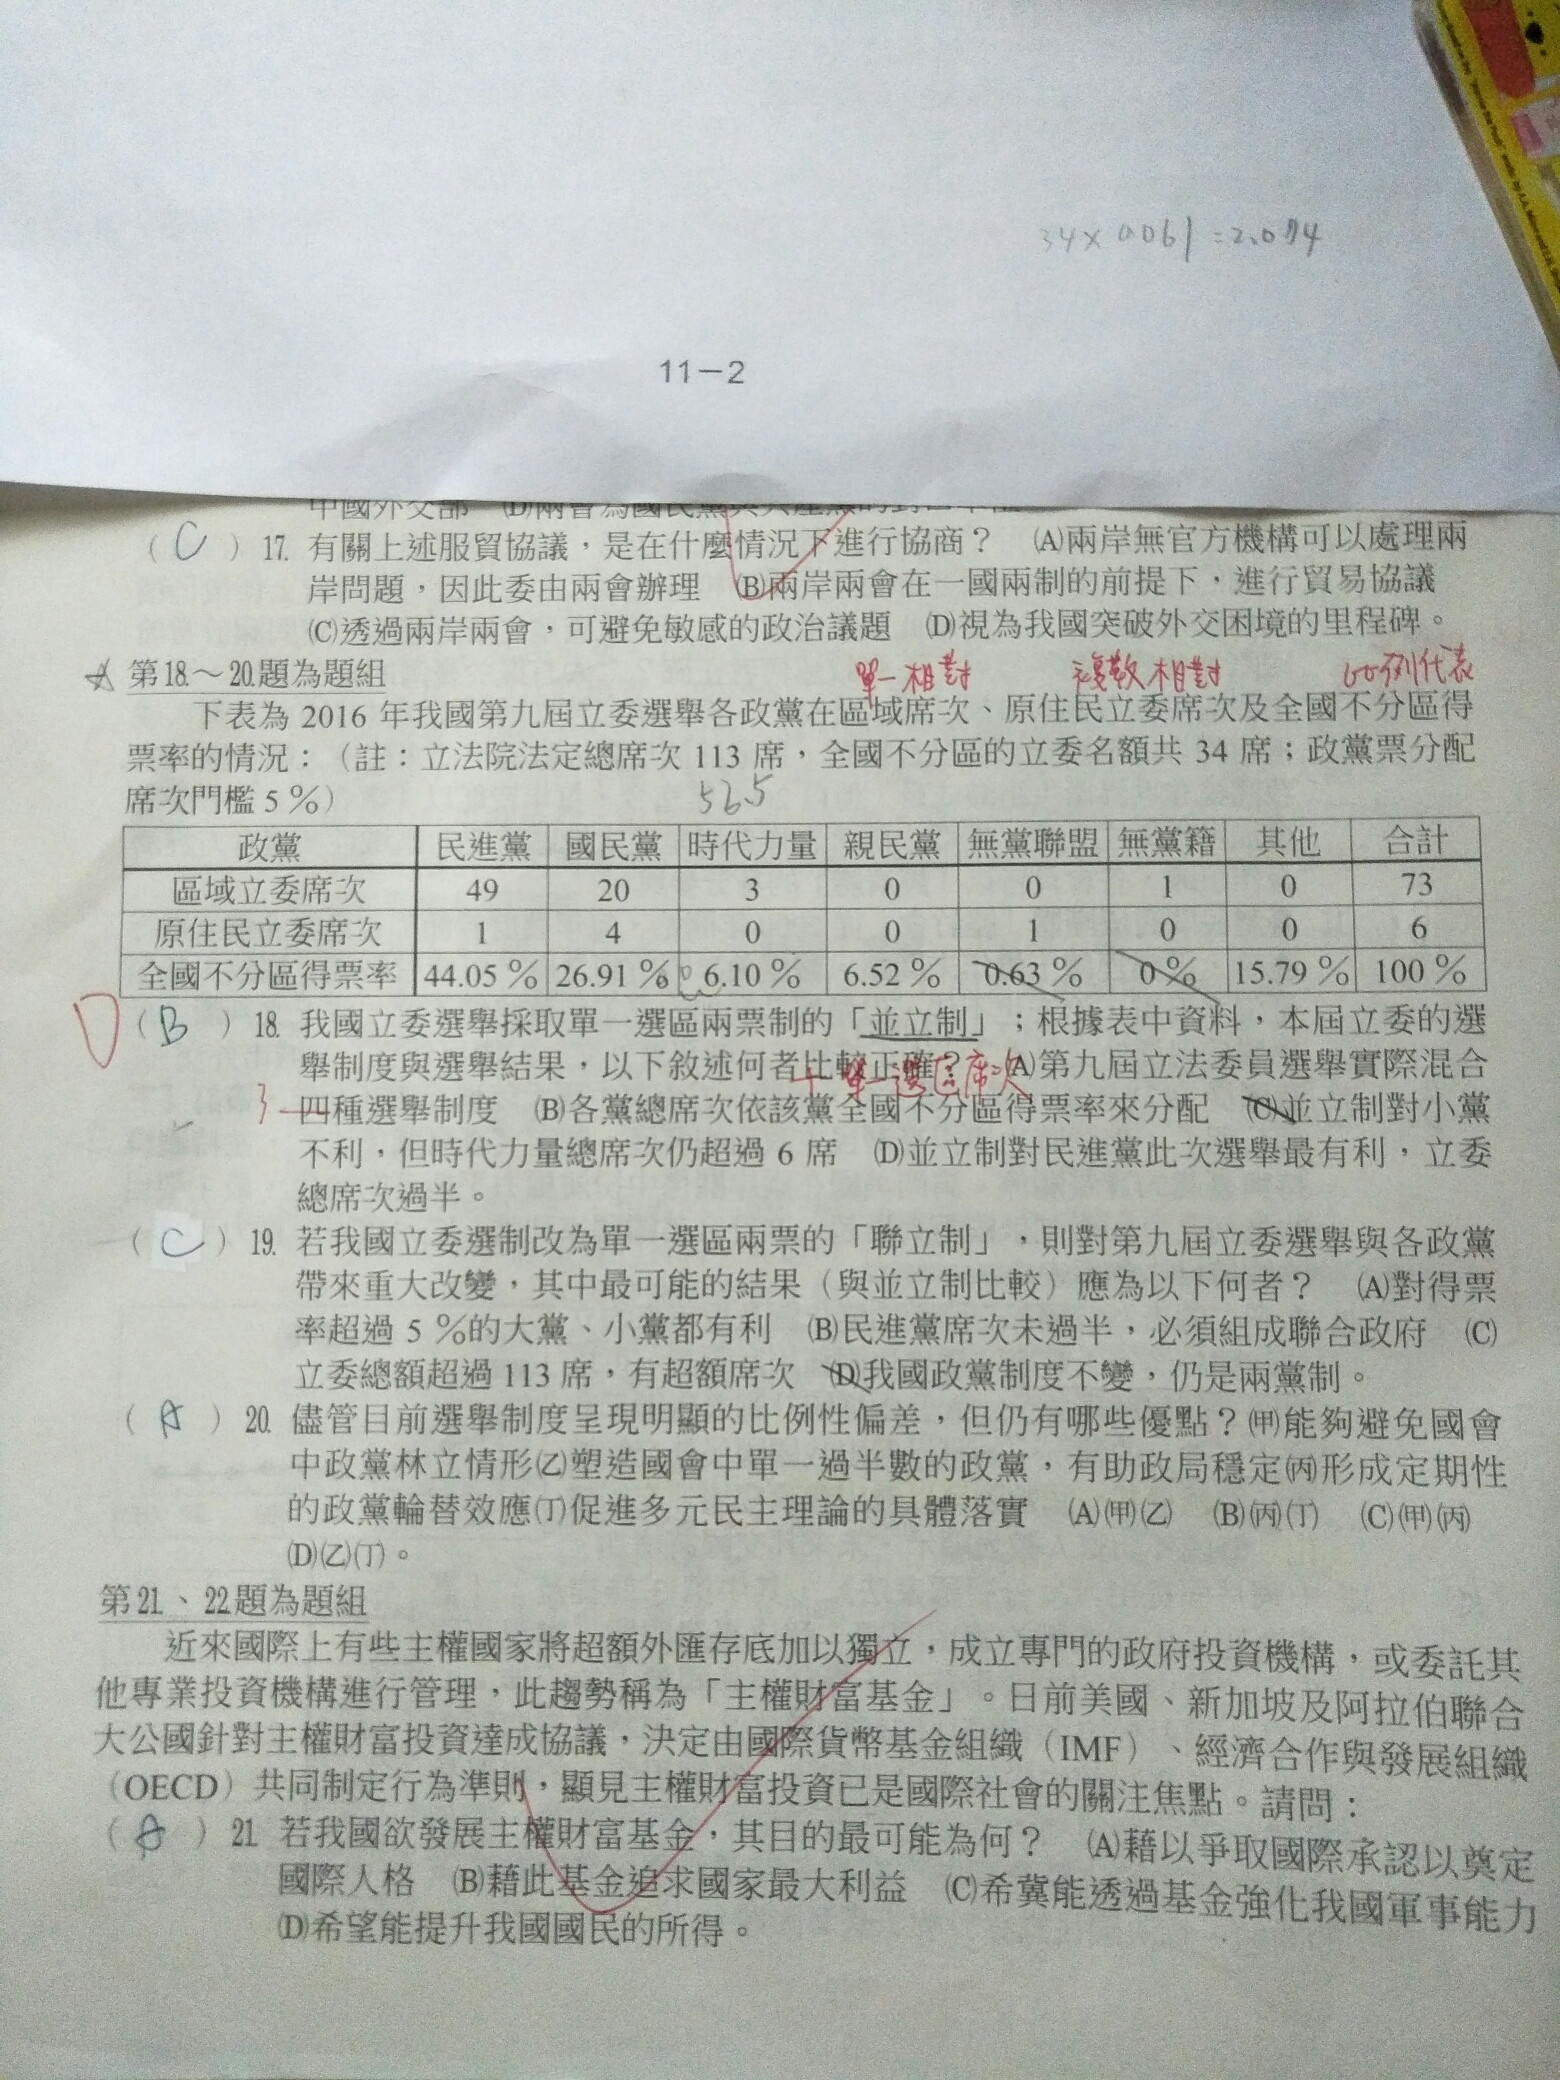 34×0.061=2.074
11－2
(C) 17. 有關上述服貿協議，是在什麼情況下進行協商？ (A)兩岸無官方機構可以處理兩
岸問題，因此委由兩會辦理 (B)兩岸兩會在一國兩制的前提下，進行貿易協議
(C)透過兩岸兩會，可避免敏感的政治議題 (D)視為我國突破外交困境的里程碑。
第18.～20.題為題組
單一相對 複數相對 比例代表
下表為 2016 年我國第九屆立委選舉各政黨在區域席次、原住民立委席次及全國不分區得
票率的情況：（註：立法院法定總席次 113 席，全國不分區的立委名額共 34 席；政黨票分配
席次門檻 5 %） 56.5
政黨 民進黨 國民黨 時代力量 親民黨 無黨聯盟 無黨籍 其他 合計
區域立委席次 49 20 3 0 0 1 0 73
原住民立委席次 1 4 0 0 1 0 0 6
全國不分區得票率 44.05 % 26.91 % 6.10 % 6.52 % 0.63 % 0 % 15.79 % 100 %
D (B) 18. 我國立委選舉採取單一選區兩票制的「並立制」；根據表中資料，本屆立委的選
舉制度與選舉結果，以下敘述何者比較正確？ (A)第九屆立法委員選舉實際混合
＋單一選區席次
3 四種選舉制度 (B)各黨總席次依該黨全國不分區得票率來分配 (C)並立制對小黨
不利，但時代力量總席次仍超過 6 席 (D)並立制對民進黨此次選舉最有利，立委
總席次過半。
(C) 19. 若我國立委選制改為單一選區兩票的「聯立制」，則對第九屆立委選舉與各政黨
帶來重大改變，其中最可能的結果（與並立制比較）應為以下何者？ (A)對得票
率超過 5 %的大黨、小黨都有利 (B)民進黨席次未過半，必須組成聯合政府 (C)
立委總額超過 113 席，有超額席次 (D)我國政黨制度不變，仍是兩黨制。
(A) 20. 儘管目前選舉制度呈現明顯的比例性偏差，但仍有哪些優點？(甲)能夠避免國會
中政黨林立情形(乙)塑造國會中單一過半數的政黨，有助政局穩定(丙)形成定期性
的政黨輪替效應(丁)促進多元民主理論的具體落實 (A)(甲)(乙) (B)(丙)(丁) (C)(甲)(丙)
(D)(乙)(丁)。
第21.、22.題為題組
近來國際上有些主權國家將超額外匯存底加以獨立，成立專門的政府投資機構，或委託其
他專業投資機構進行管理，此趨勢稱為「主權財富基金」。日前美國、新加坡及阿拉伯聯合
大公國針對主權財富投資達成協議，決定由國際貨幣基金組織（IMF）、經濟合作與發展組織
（OECD）共同制定行為準則，顯見主權財富投資已是國際社會的關注焦點。請問：
21. 若我國欲發展主權財富基金，其目的最可能為何？ (A)藉以爭取國際承認以奠定
國際人格 (B)藉此基金追求國家最大利益 (C)希冀能透過基金強化我國軍事能力
(D)希望能提升我國國民的所得。